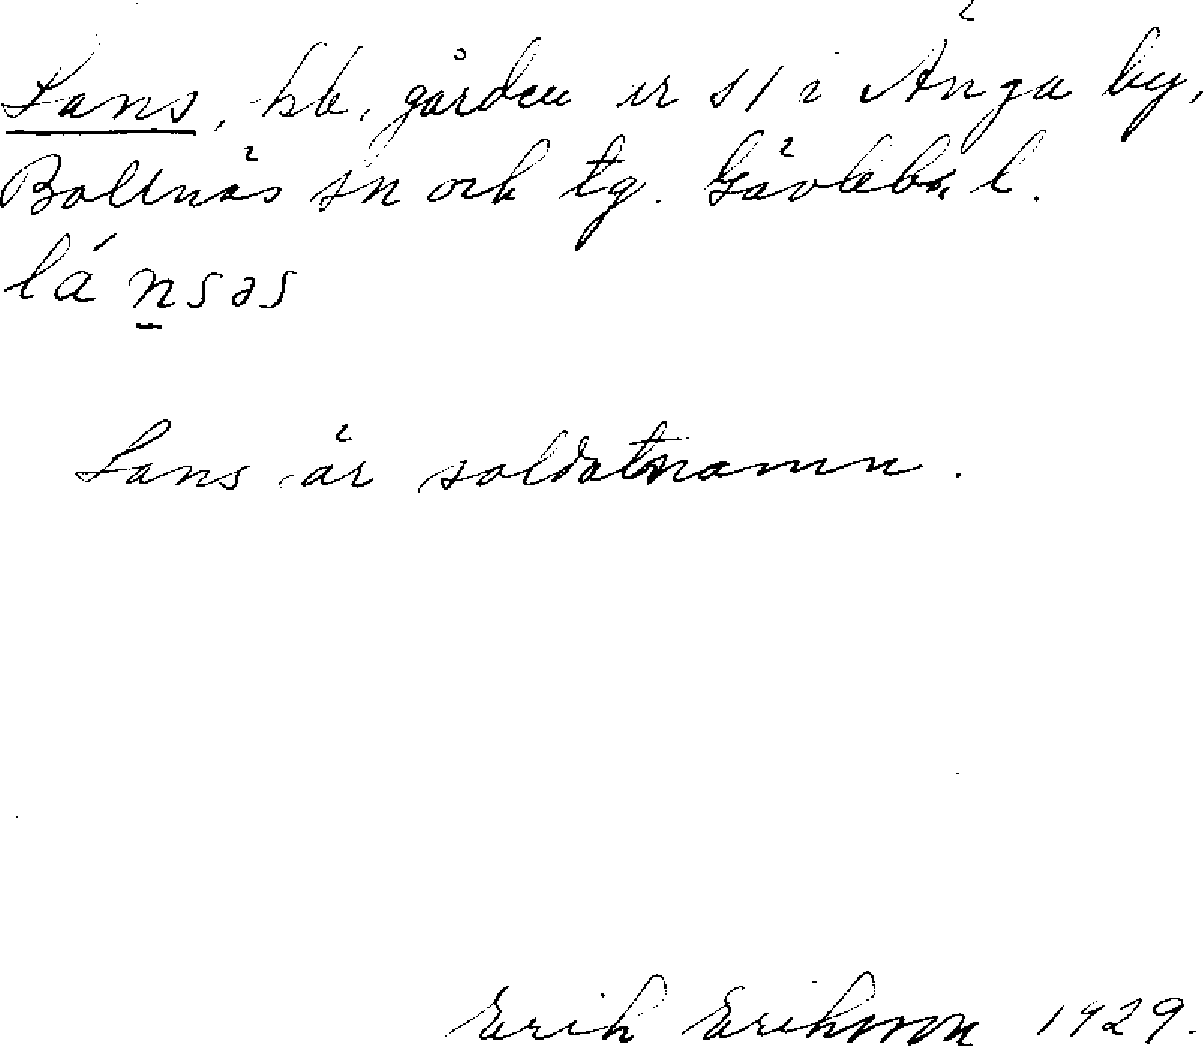 Lans, hb, gården nr 51 i Änga by,
Bollnäs sn och tg. Gävleb. l.
lánsəs
Lans är soldatnamn.
Erik Eriksson 1929.